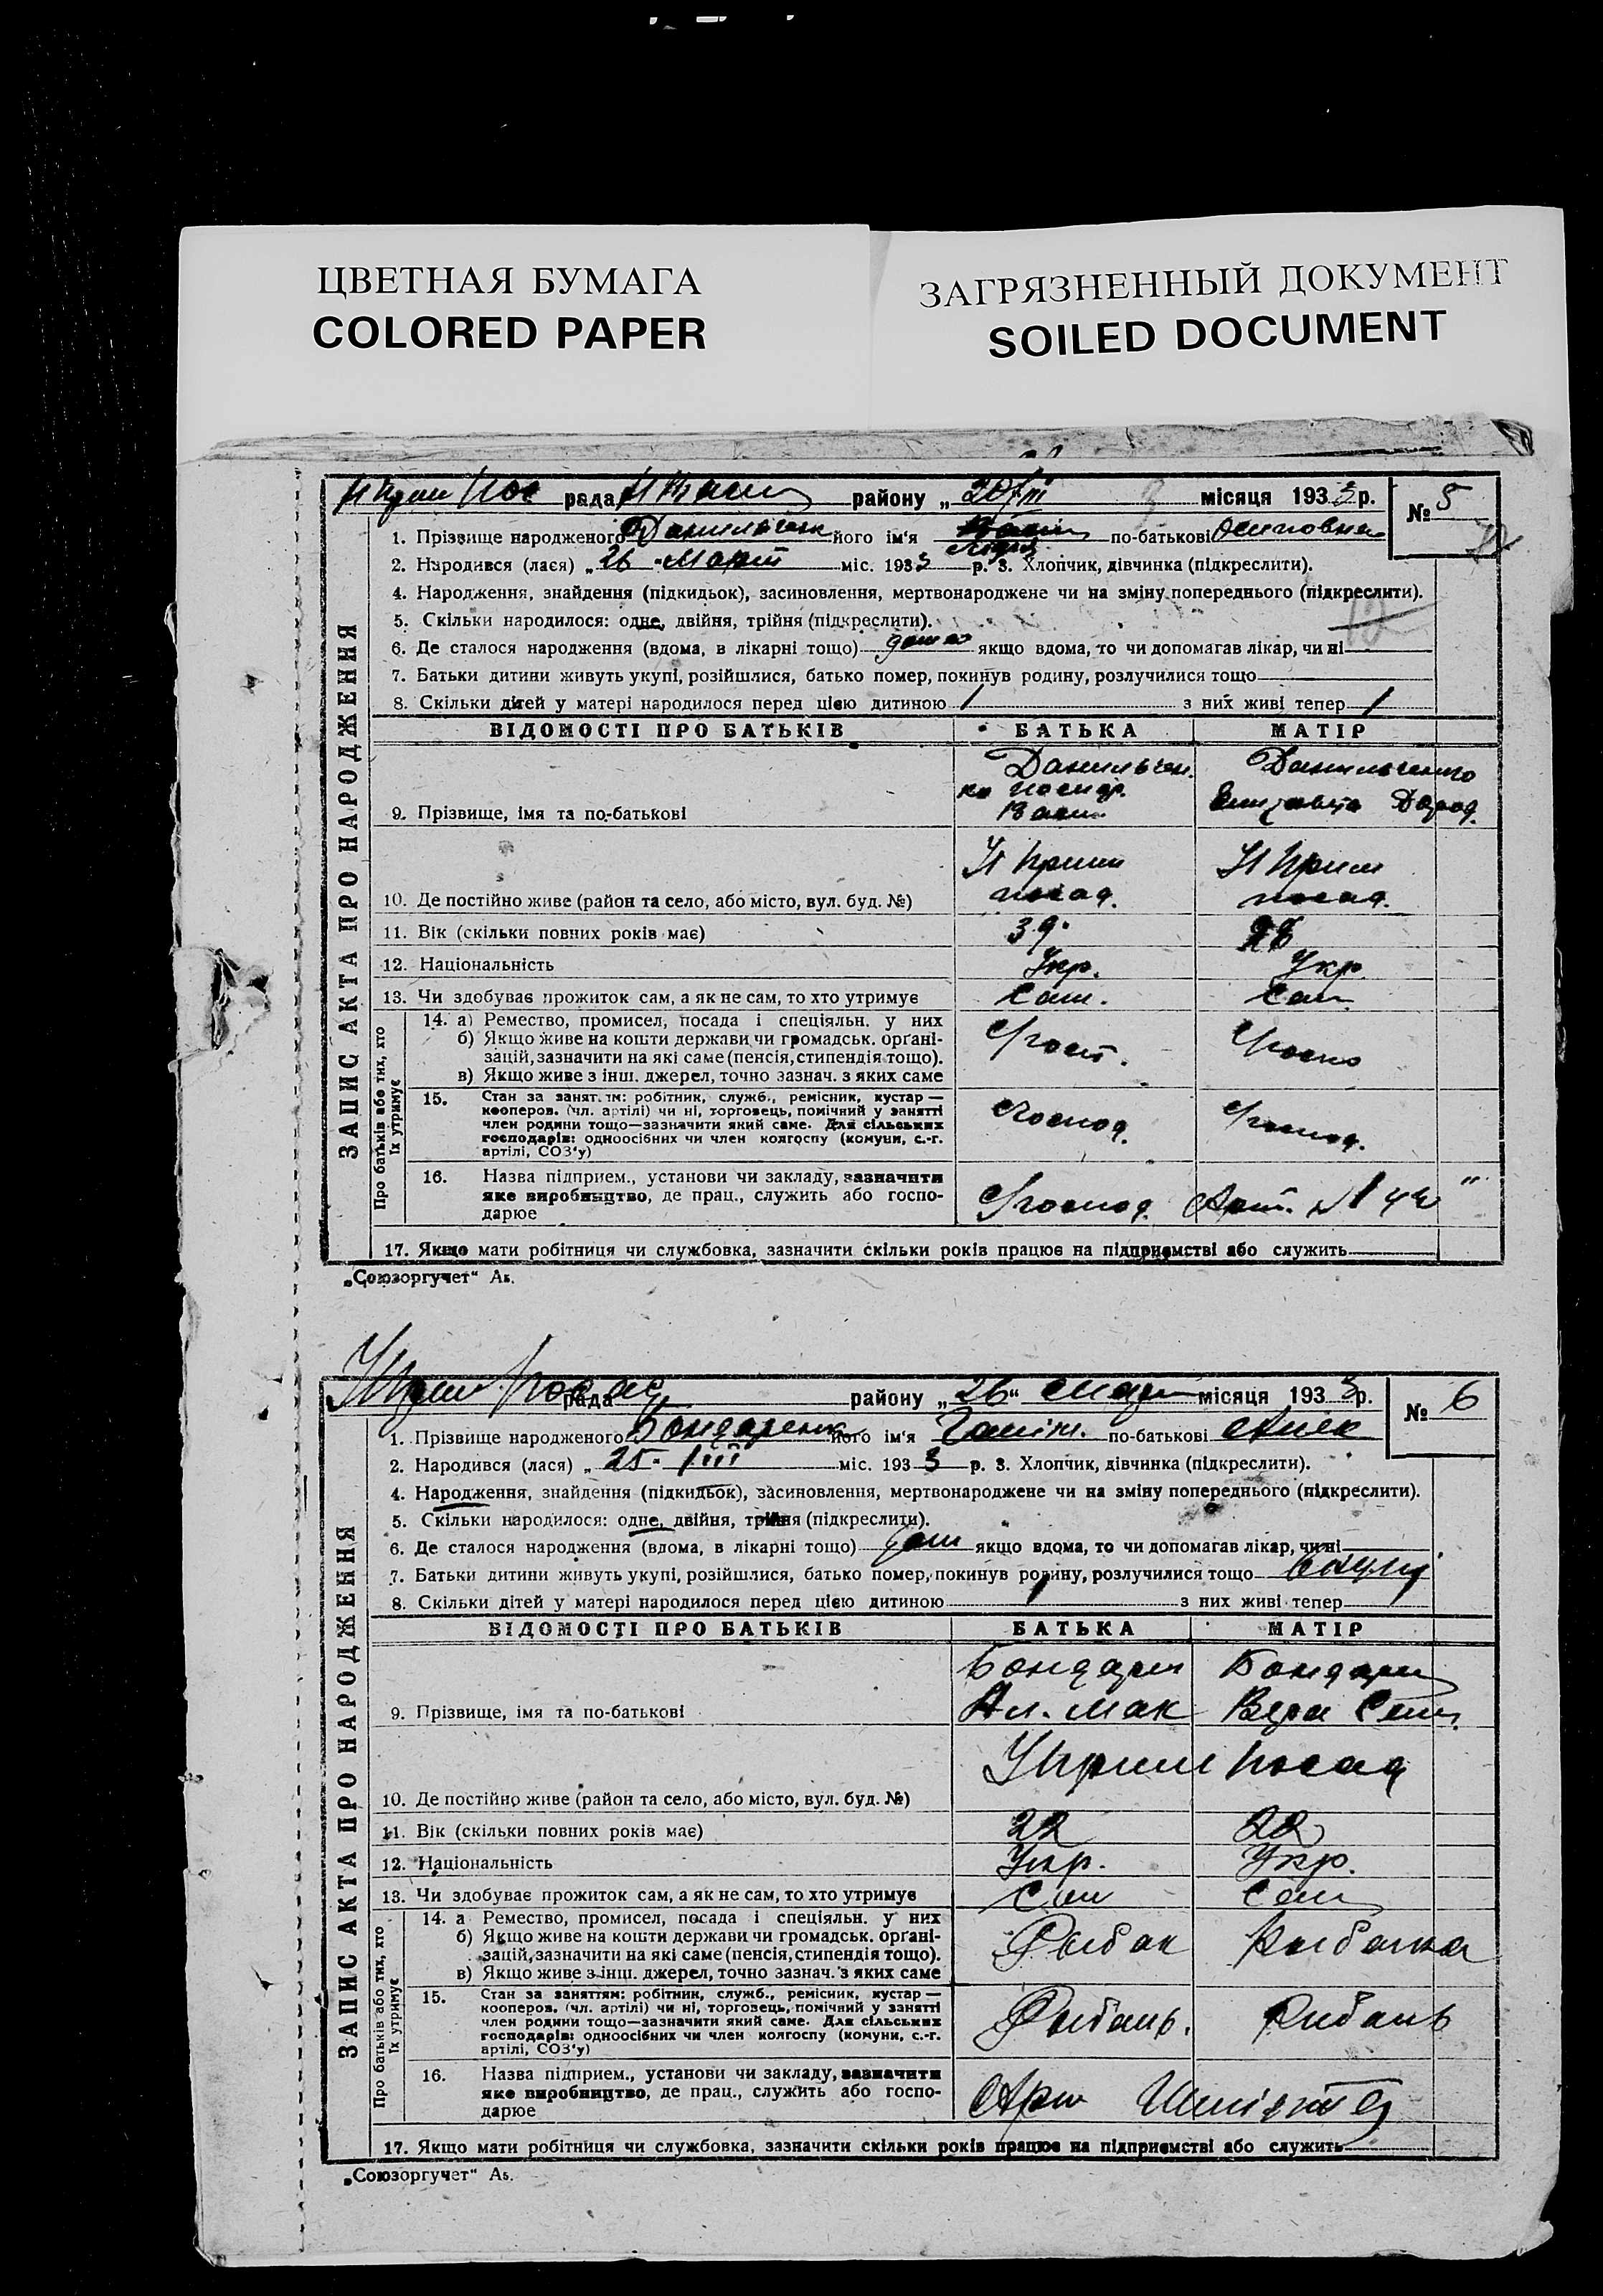 ЦВЕТНАЯ БУМАГА
COLORED PAPER
ЗАГРЯЗНЕННЫЙ ДОКУМЕНТ
SOILED DOCUMENT
рада району „ 20/III місяця 1933 р. № 5
ЗАПИС АКТА ПРО НАРОДЖЕННЯ
1. Прізвище народженого Данильченк його ім'я по-батькові Осиповна
2. Народився (лася) „ 26 " Март міс. 1933 р. 3. Хлопчик, дівчинка (підкреслити).
4. Народження, знайдення (підкидьок), засиновлення, мертвонароджене чи на зміну попереднього (підкреслити).
5. Скільки народилося: одне, двійня, трійня (підкреслити).
6. Де сталося народження (вдома, в лікарні тощо) дома якщо вдома, то чи допомагав лікар, чи ні
7. Батьки дитини живуть укупі, розійшлися, батько помер, покинув родину, розлучилися тощо
8. Скільки дітей у матері народилося перед цією дитиною 1 з них живі тепер 1
ВІДОМОСТІ ПРО БАТЬКІВ БАТЬКА МАТІР
Данильчен. Данильченко
9. Прізвище, імя та по-батькові
10. Де постійно живе (район та село, або місто, вул. буд. №) посад. посад.
11. Вік (скільки повних років має) 39.
12. Національність Укр. Укр.
13. Чи здобуває прожиток сам, а як не сам, то хто утримує Сам. Сам
Про батьків або тих, хто їх утримує
14. а) Ремество, промисел, посада і спеціяльн. у них
б) Якщо живе на кошти держави чи громадськ. орґані-
зацій, зазначити на які саме (пенсія, стипендія тощо).
в) Якщо живе з інш. джерел, точно зазнач. з яких саме
15. Стан за занят. тм: робітник, служб., ремісник, кустар —
кооперов. (чл. артілі) чи ні, торговець, помічний у занятті
член родини тощо—зазначити який саме. Для сільських
господарів: одноосібних чи член колгоспу (комуни, с.-г.
артілі, СОЗ'у)
Господ. Господ.
16. Назва підприєм., установи чи закладу, зазначити
яке виробництво, де прац., служить або госпо-
дарює
Господ. Арт.
17. Якщо мати робітниця чи службовка, зазначити скільки років працює на підприємстві або служить
„Союзоргучет" Аб.
рада району „ 26 " місяця 1933 р. № 6
ЗАПИС АКТА ПРО НАРОДЖЕННЯ
1. Прізвище народженого Бондаренко його ім'я по-батькові
2. Народився (лася) „ 25. /III міс. 1933 р. 3. Хлопчик, дівчинка (підкреслити).
4. Народження, знайдення (підкидьок), засиновлення, мертвонароджене чи на зміну попереднього (підкреслити).
5. Скільки народилося: одне, двійня, трійня (підкреслити).
6. Де сталося народження (вдома, в лікарні тощо) дом якщо вдома, то чи допомагав лікар, чи ні
7. Батьки дитини живуть укупі, розійшлися, батько помер, покинув родину, розлучилися тощо вкупі
8. Скільки дітей у матері народилося перед цією дитиною 1 з них живі тепер
ВІДОМОСТІ ПРО БАТЬКІВ БАТЬКА МАТІР
Бондарен Бондарен
9. Прізвище, імя та по-батькові Ал. Мак Вера Сем.
10. Де постійно живе (район та село, або місто, вул. буд. №) Прим Посад
11. Вік (скільки повних років має) 22 22
12. Національність Укр. Укр.
13. Чи здобуває прожиток сам, а як не сам, то хто утримує Сам Сам
Про батьків або тих, хто їх утримує
14. а Ремество, промисел, посада і спеціяльн. у них
б) Якщо живе на кошти держави чи громадськ. орґані-
зацій, зазначити на які саме (пенсія, стипендія тощо).
в) Якщо живе з інш. джерел, точно зазнач. з яких саме
Рыбак Рыбачка
15. Стан за заняттям: робітник, служб., ремісник, кустар —
кооперов. (чл. артілі) чи ні, торговець, помічний у занятті
член родини тощо—зазначити який саме. Для сільських
господарів: одноосібних чи член колгоспу (комуни, с.-г.
артілі, СОЗ'у)
16. Назва підприєм., установи чи закладу, зазначити
яке виробництво, де прац., служить або госпо-
дарює
17. Якщо мати робітниця чи службовка, зазначити скільки років працює на підприємстві або служить
„Союзоргучет" Аб.